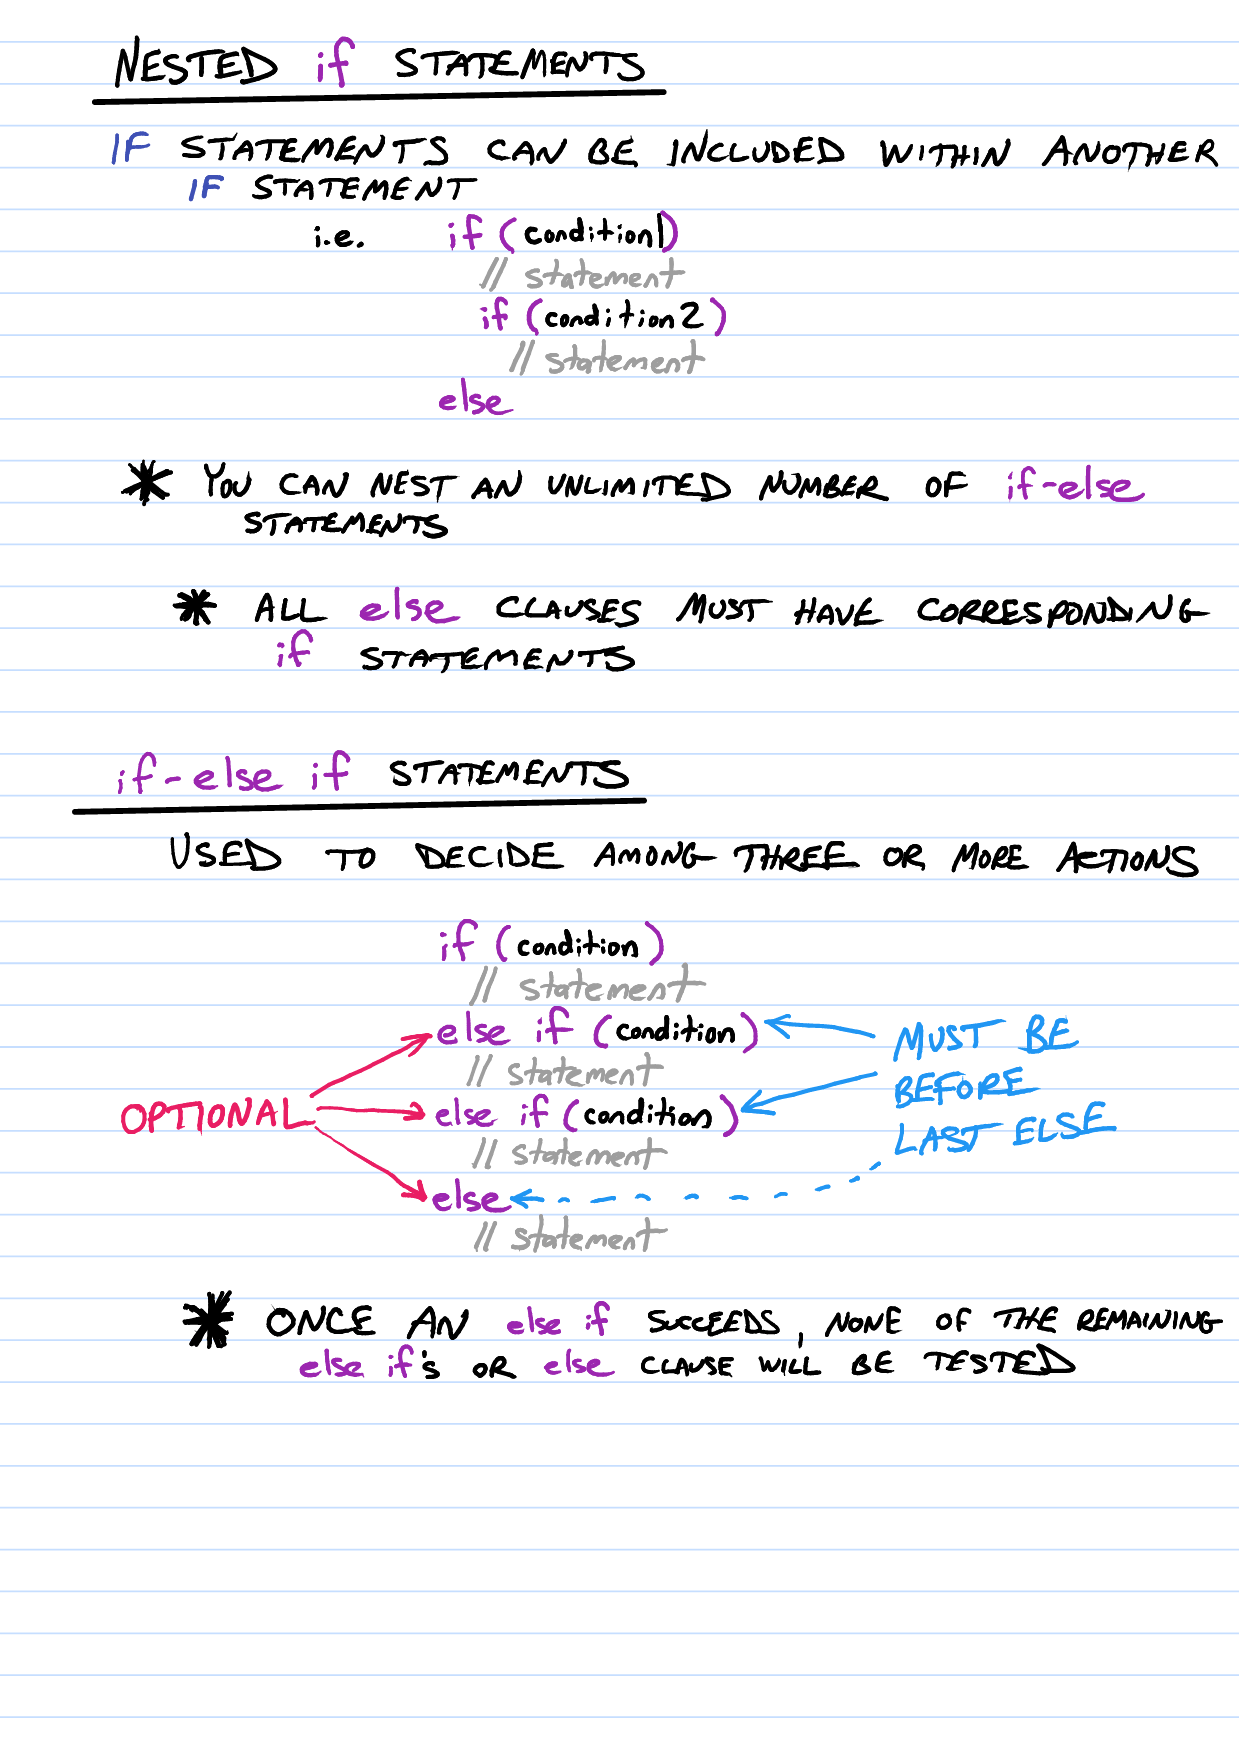 NESTED if STATEMENTS
IF STATEMENTS CAN BE INCLUDED WITHIN ANOTHER
IF STATEMENT
i.e. if (condition1)
// statement
if (condition2)
// statement
else
* YOU CAN NEST AN UNLIMITED NUMBER OF if-else
STATEMENTS
* ALL else CLAUSES MUST HAVE CORRESPONDING
if STATEMENTS
if-else if STATEMENTS
USED TO DECIDE AMONG THREE OR MORE ACTIONS
if (condition)
// statement
else if (condition)
// statement
else if (condition)
// statement
else
// statement
OPTIONAL
MUST BE
BEFORE
LAST ELSE
* ONCE AN else if SUCCEEDS, NONE OF THE REMAINING
else if's OR else CLAUSE WILL BE TESTED